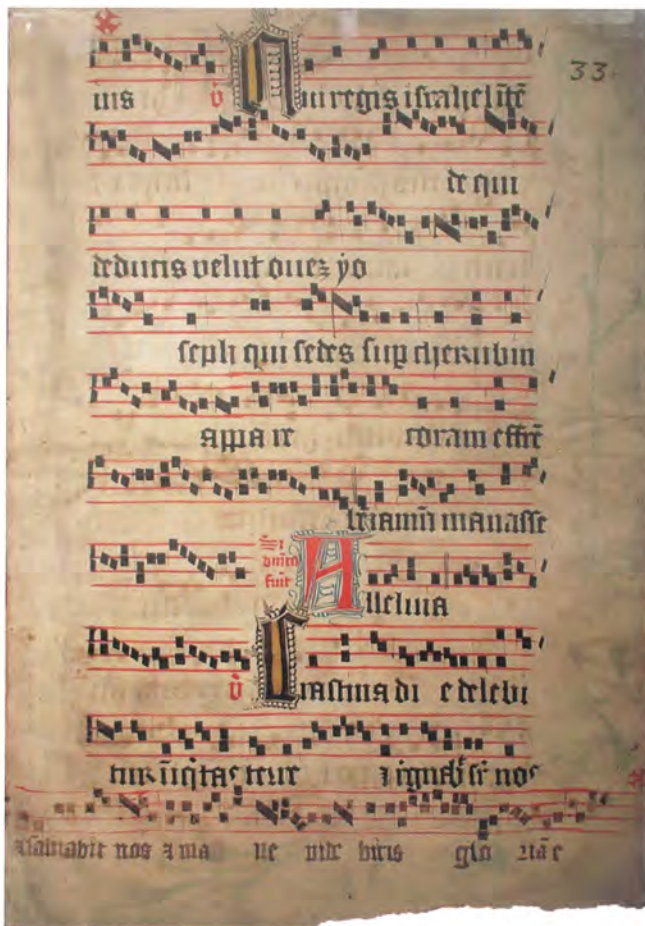 33
ius v̄ Qui regis israhel ītē
de qui
deducis velut ouez yo
seph qui sedes sup cherubin
appa re coram effrē
manasse
dn̄ica
fuit
Alleluia
v̄ Crastina di e delebi
tur īiq̄tas terre ⁊ īgnab̄ sr̄ nos
saluabit nos ⁊ ma ne vide bitis glo riā e